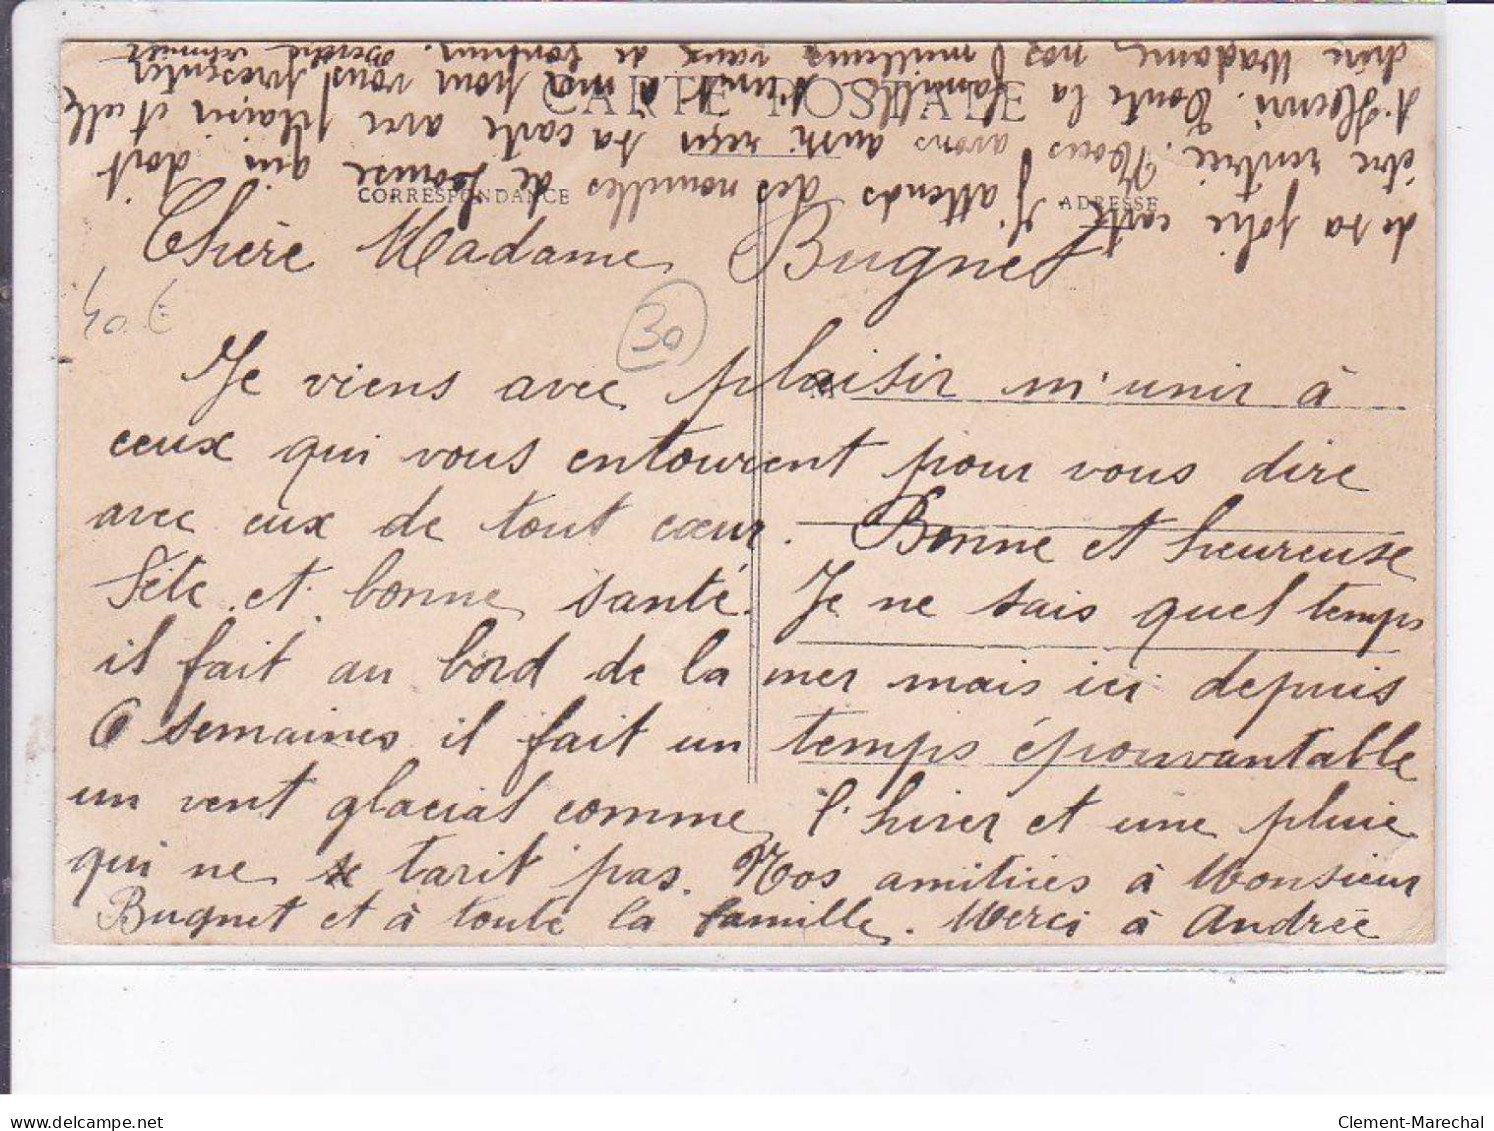 CARTE POSTALE
CORRESPONDANCE
ADRESSE
Chère Madame Bugnet
40 €
30
Je viens avec plaisir m'unir à
ceux qui vous entourent pour vous dire
avec eux de tout cœur. Bonne et heureuse
Fête et bonne santé. Je ne sais quel temps
il fait au bord de la mer mais ici depuis
6 semaines il fait un temps épouvantable
un vent glacial comme l'hiver et une pluie
qui ne tarit pas. Nos amitiés à Monsieur
Bugnet et à toute la famille. Merci à Andrée
de sa jolie carte. J'attends des nouvelles de Louise qui doit
être rentrée. Nous avons aussi reçu sa carte avec plaisir et celle
d'Henri. Toute la famille s'unit à moi pour vous présenter
chère Madame nos meilleurs vœux de bonheur.
delcampe.net
Clement-Marechal